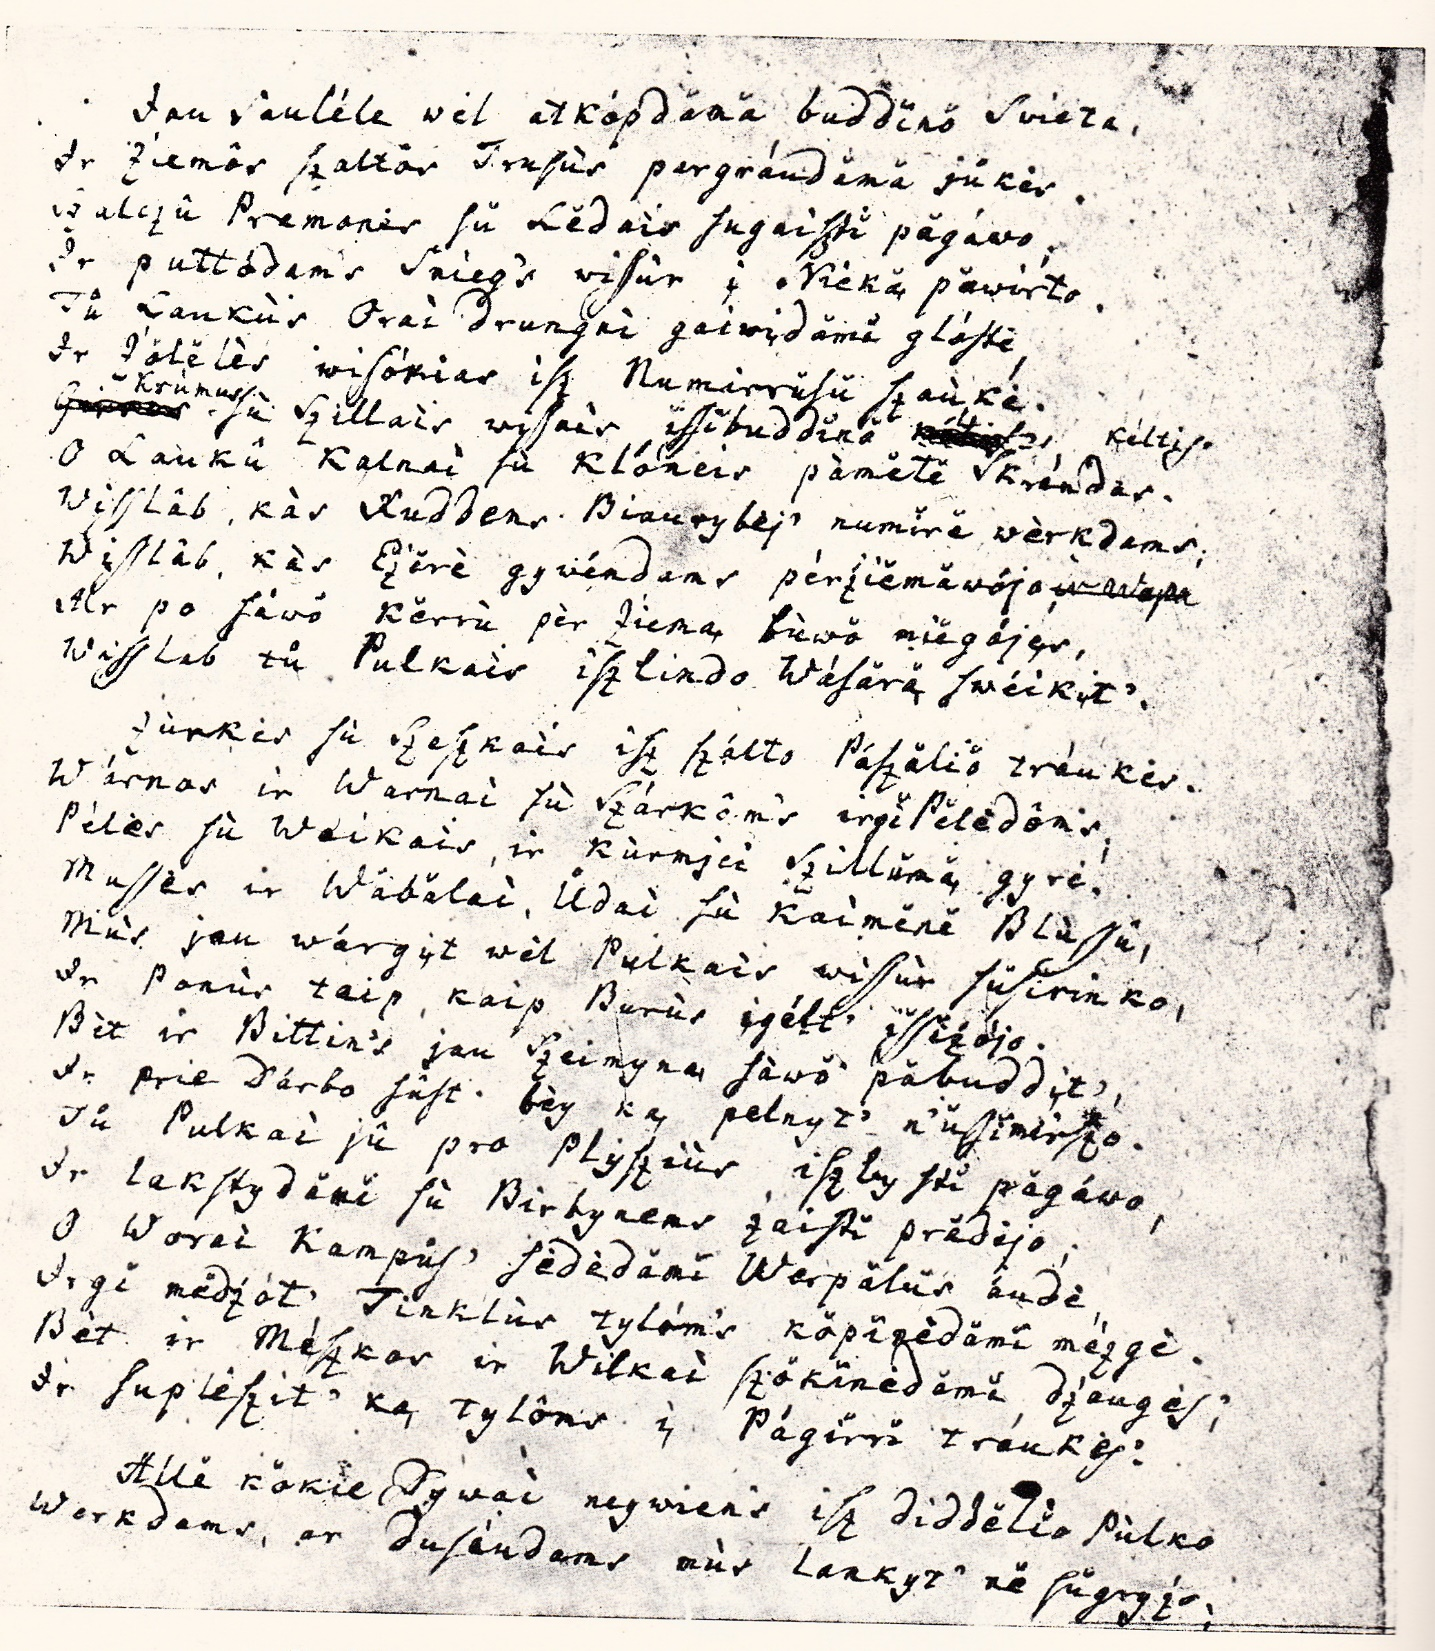 Jau Sauléle wėl atkópdama buddino Swieta,
Ir Źiemôs ſzaltôs Truſus pargráudama jůkės.
Szalczû Premonės ſu Lėdais ſugaiſzti pagáwo;
Ir puttódam's Snieg's wiſſur į Nieką pawirto.
Tů Laukùs Orai drungni gaiwįdami glóſtė,
Ir Źolelės wiſókias iſz Numirruſû ſzaukė.
Krúmus ſù Szillais wiſſais iſſibuddino kéltis.
O Laukû Kalnai ſù Klóneis pamėtė Skrándas.
Wiſſlab, kàs Ruddens Biaurybėj' numirė wėrkdams;
Wiſſlab, kàs Eźerė gywéndams pérźiemawójo
Ar po ſáwo Kerrù pėr Źiemą bùwo miegójęs,
Wiſſlab tů Pulkais iſzlindo Wáſarą ſwéikįt'.
Źurkės ſù Szeſzkais iſz ſzálto Páſzalio tráukės.
Wárnos ir Warnai ſù Szárkôms irgi Pelėdôms,
Pélės ſù Waikais, ir Kurmjei Szillumą gyrė.
Muſſės ir Wabalai, Ůdai ſù Kaimenė Bluſſû,
Mùs jau wárgįt wėl Pulkais wiſſur ſuſirinko,
Ir Ponùs taip, kaip Burùs įgélt' iſſiźójo.
Bėt ir Bittin's jau Szeimyną ſàwo pabuddįt',
Ir prie Darbo ſiųſt' bėy ką pelnyt' n'uſſimirſzo.
Tů Pulkai jû pro Plyſziùs iſzlyſti pagáwo,
Ir lakſtydami ſù Birbynėms źaiſti pradėjo;
O Worai Kampůſ' ſėdėdami Werpalus áudė,
Irgi medźót' Tinklùs tylóms kopinėdami mézgė.
Bėt ir Méſzkos ir Wilkai ſzokinėdami dźaugės,
Ir ſuplėſzit' ką tylôms į Págirrį tráukės.
Allė kokie Dywai neywien's iſz diddelio Pùlko
Werkdams, ar Duſáudams mùs lankyt' nė ſugryźo;